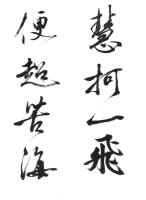 慧柯一飛
便超苦海